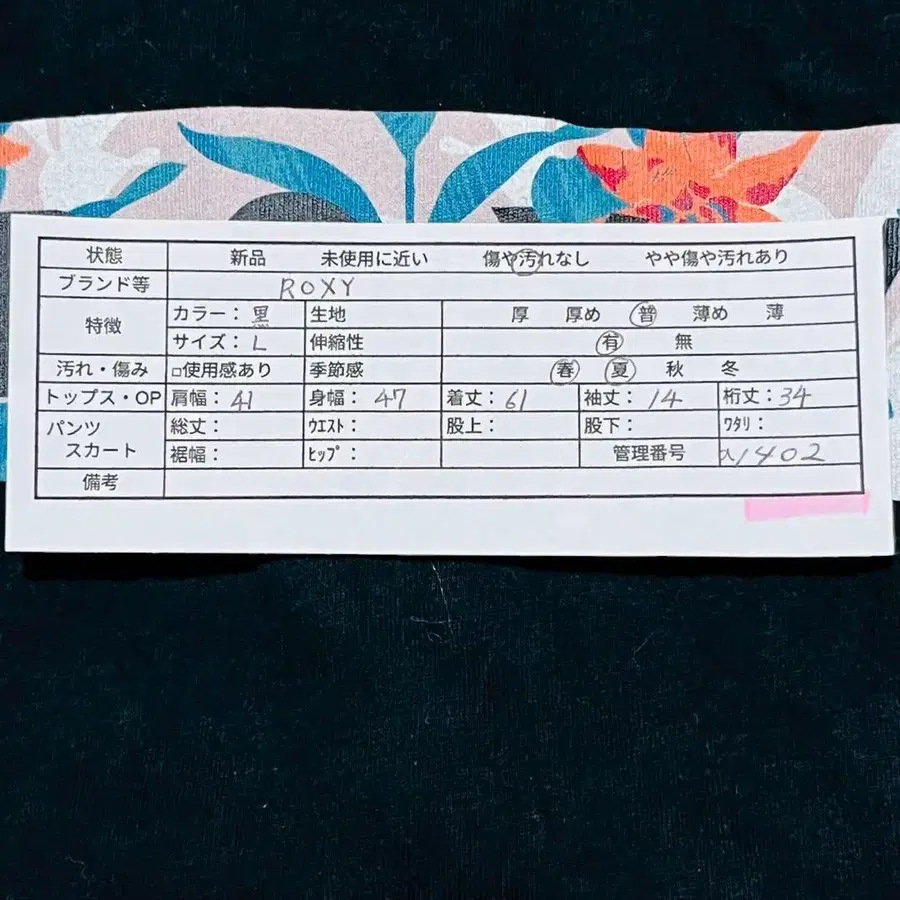 状態 新品 未使用に近い 傷や汚れなし やや傷や汚れあり
ブランド等 ROXY
特徴 カラー：黒 生地 厚 厚め 普 薄め 薄
サイズ：L 伸縮性 有 無
汚れ・傷み □使用感あり 季節感 春 夏 秋 冬
トップス・OP 肩幅：41 身幅：47 着丈：61 袖丈：14 桁丈：34
パンツ 総丈： ｳｴｽﾄ： 股上： 股下： ﾜﾀﾘ：
スカート 裾幅： ﾋｯﾌﾟ： 管理番号 a1402
備考